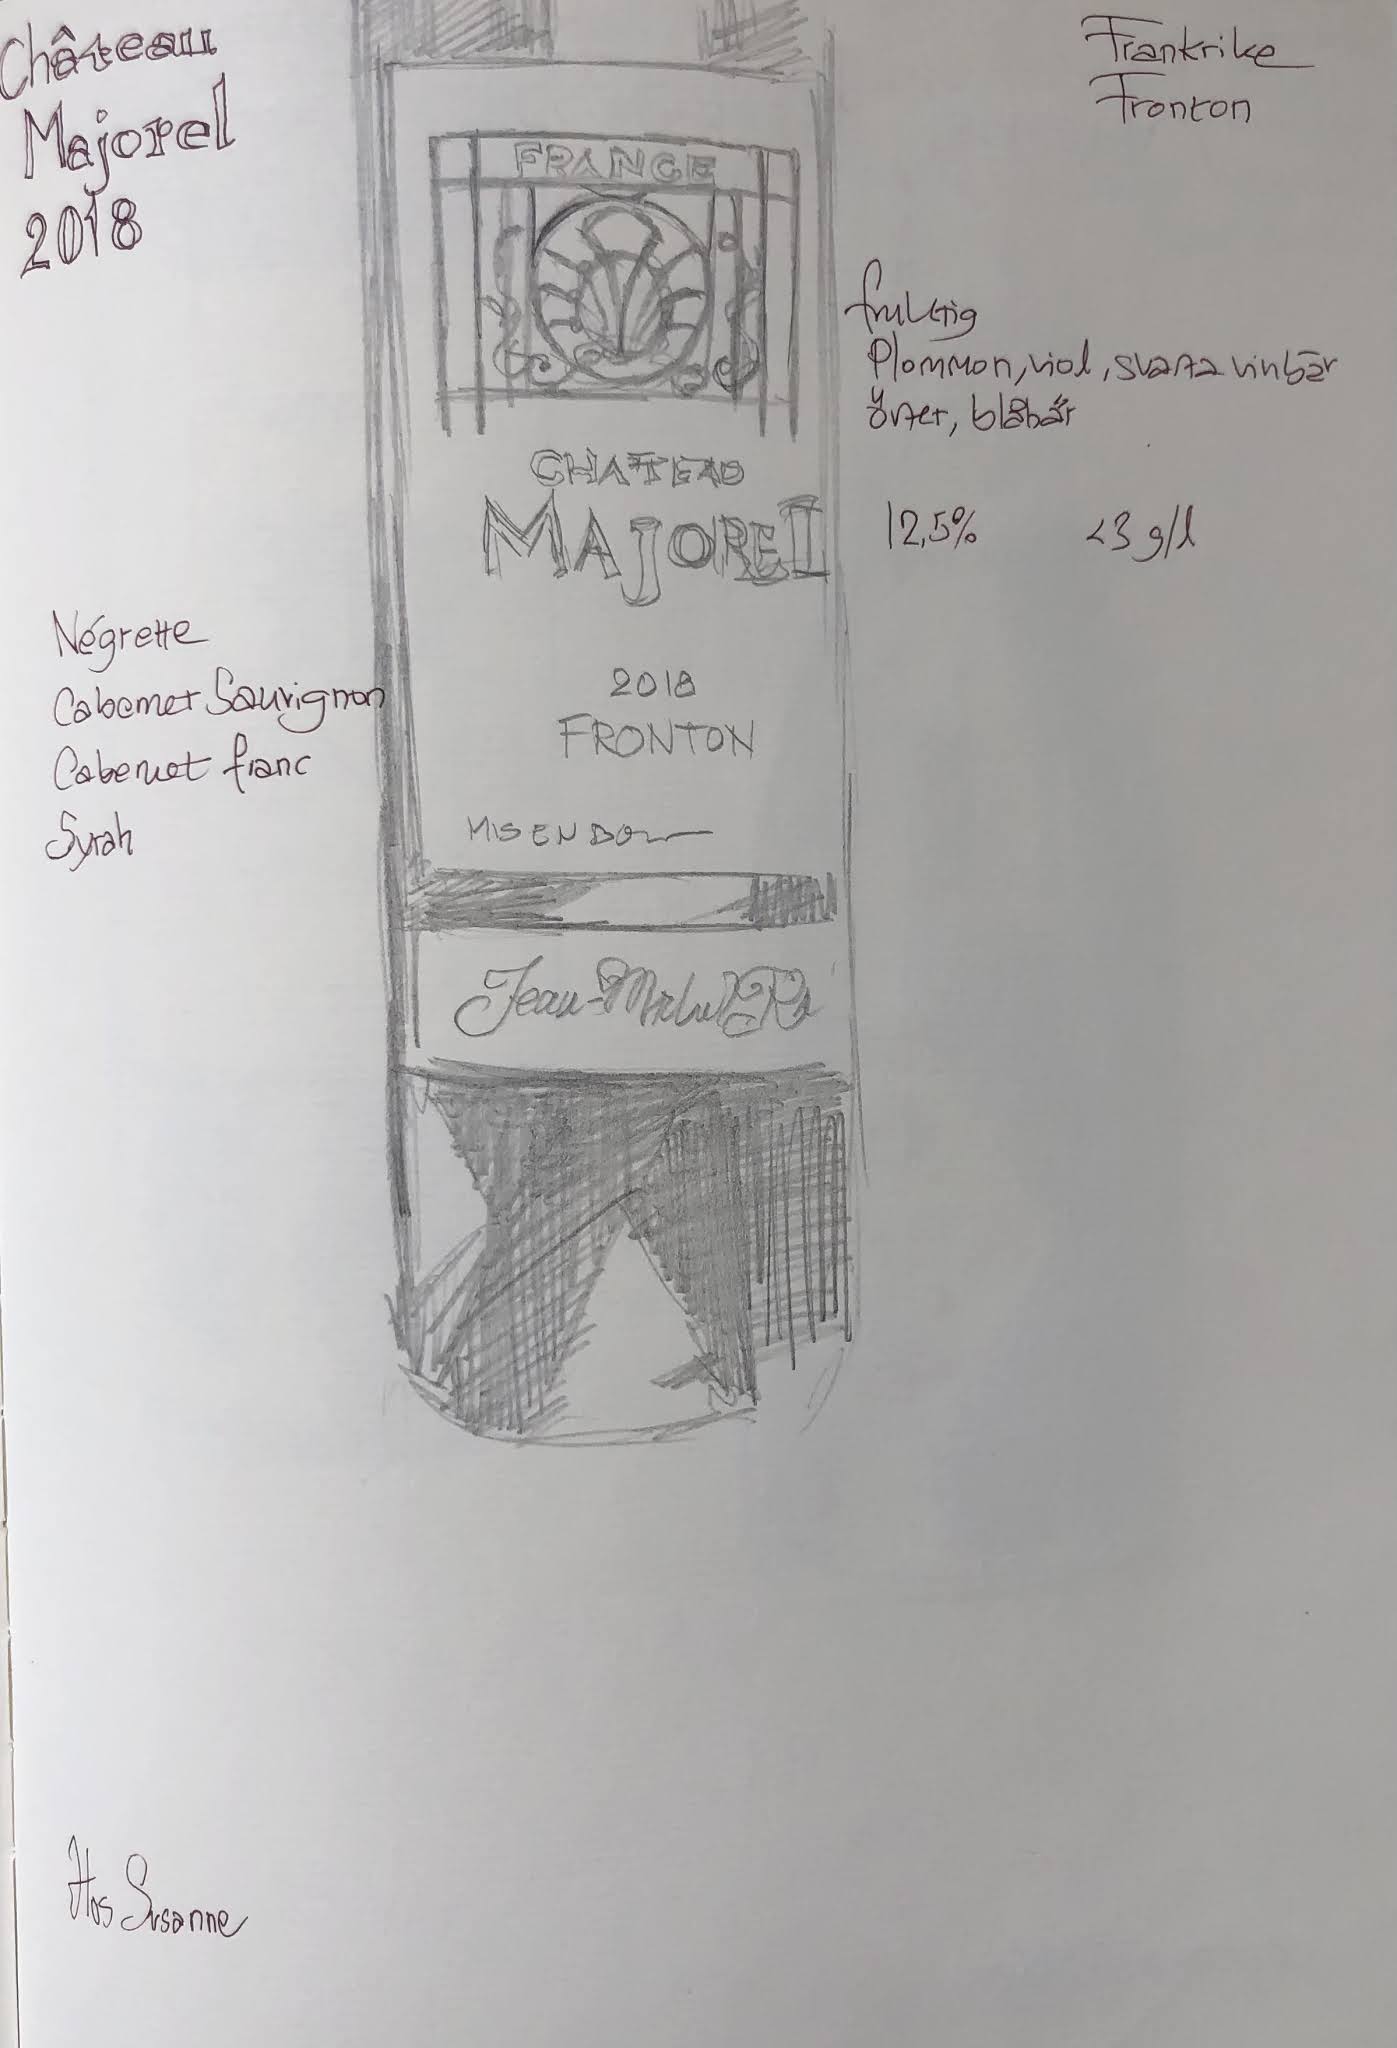 Château
Majorel
2018
Frankrike
Fronton
FRANCE
fruktig
Plommon, viol, svarta vinbär
örter, blåbär
CHATEAU
MAJOREL
12,5% <3 g/l
Négrette
Cabernet Sauvignon
Cabernet franc
Syrah
2018
FRONTON
MIS EN DO
Jean-Michel
Hos Susanne